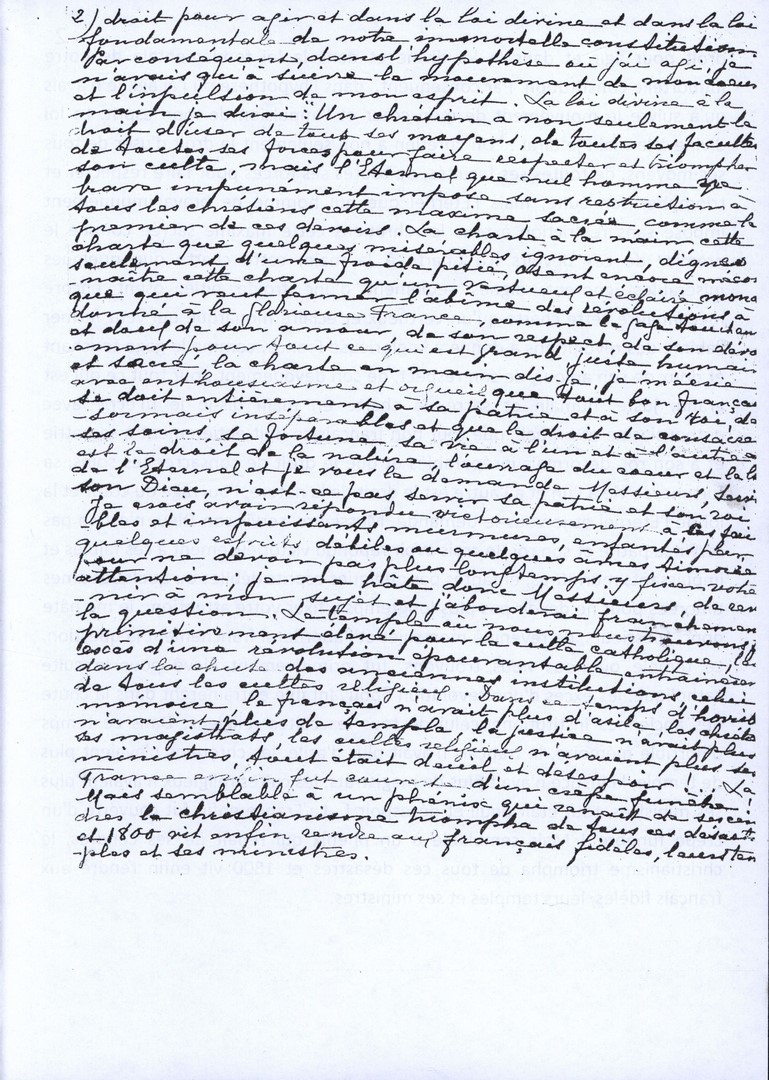 2) droit pour agir et dans la loi divine et dans la loi
fondamentale de notre immortelle constitution.
Par conséquent, dans l'hypothèse où j'ai agi, je
n'avais qu'à suivre le mouvement de mon coeur
et l'impulsion de mon esprit. La loi divine à la
main je dirai: "Un chrétien a non seulement le
droit d'user de tous ses moyens, de toutes ses facultés
de toutes ses forces pour faire respecter et triompher
son culte, mais l'Eternel que nul homme ne
brave impunément impose sans restriction à
tous les chrétiens cette maxime sacrée comme le
premier de ces devoirs. La charte à la main cette
charte que quelques misérables ignorent, dignes
seulement d'une froide pitié, osent encore mécon
naître cette charte qu'un vertueux et éclairé mona
que qui veut fermer l'abîme des révolutions a
donnée à la glorieuse France, comme le gage touchan
et doux de son amour, de son respect de son dévo
ument pour tout ce qui est grand juste humain
et sacré, la charte en main, dis-je, je m'écriai
avec enthousiasme et orgueil que tout bon français
se doit entièrement à sa patrie et à son roi, dé
sormais inséparables et que le droit de consacrer
ses soins sa fortune sa vie à l'un et à l'autre
est le droit de la nature, l'ouvrage du coeur et la loi
de l'Eternel et je vous le demande Messieurs, servir
son Dieu, n'est-ce pas servir sa patrie et son roi
Je crois avoir répondu victorieusement à ces fai
bles et impuissants murmures, enfantés par
quelques esprits débiles ou quelques âmes timorées
pour ne devoir pas plus longtemps y fixer votre
attention, je me hâte donc Messieurs, de reve
nir à mon sujet et j'aborderai franchement
la question. Le temple où nous nous trouvons fut
primitivement élevé pour le culte catholique, les
excès d'une révolution épouvantable entraînèrent
dans la chute de anciennes institutions, celui
de tous les cultes religieux. Dans ce temps d'horrible
mémoire le français n'avait plus d'asile, les chrétiens
n'avaient plus de temple, la justice n'avait plus
ses magistrats, les cultes religieux n'avaient plus ses
ministres, tout était deuil et désespoir. La
France enfin fut couverte d'un crêpe funèbre!
Mais semblable à un phénix qui renaît de ses cen
dres, le christianisme triompha de tous ces désastres
et 1800 vit enfin rendre aux français fidèles, leurs tem
ples et ses ministres.